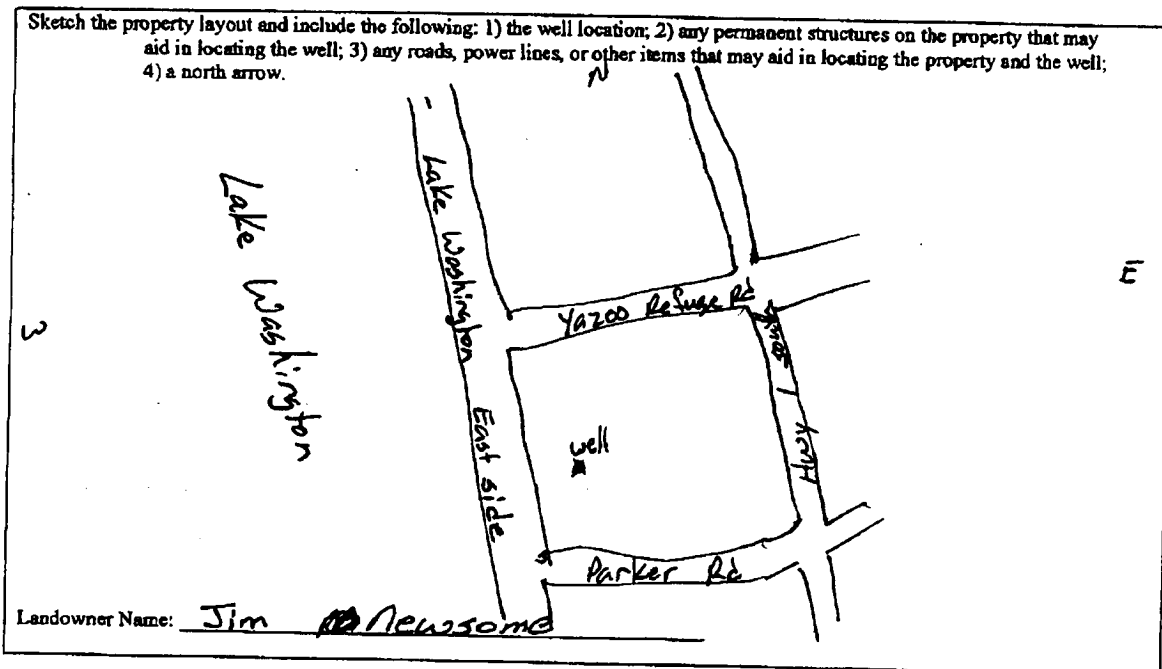 Sketch the property layout and include the following: 1) the well location; 2) any permanent structures on the property that may
aid in locating the well; 3) any roads, power lines, or other items that may aid in locating the property and the well;
4) a north arrow.
N
Lake Washington
Lake Washington East side
Yazoo Refuge Rd
E
W
Hwy 1 South
well
Parker Rd
Landowner Name: Jim Newsome